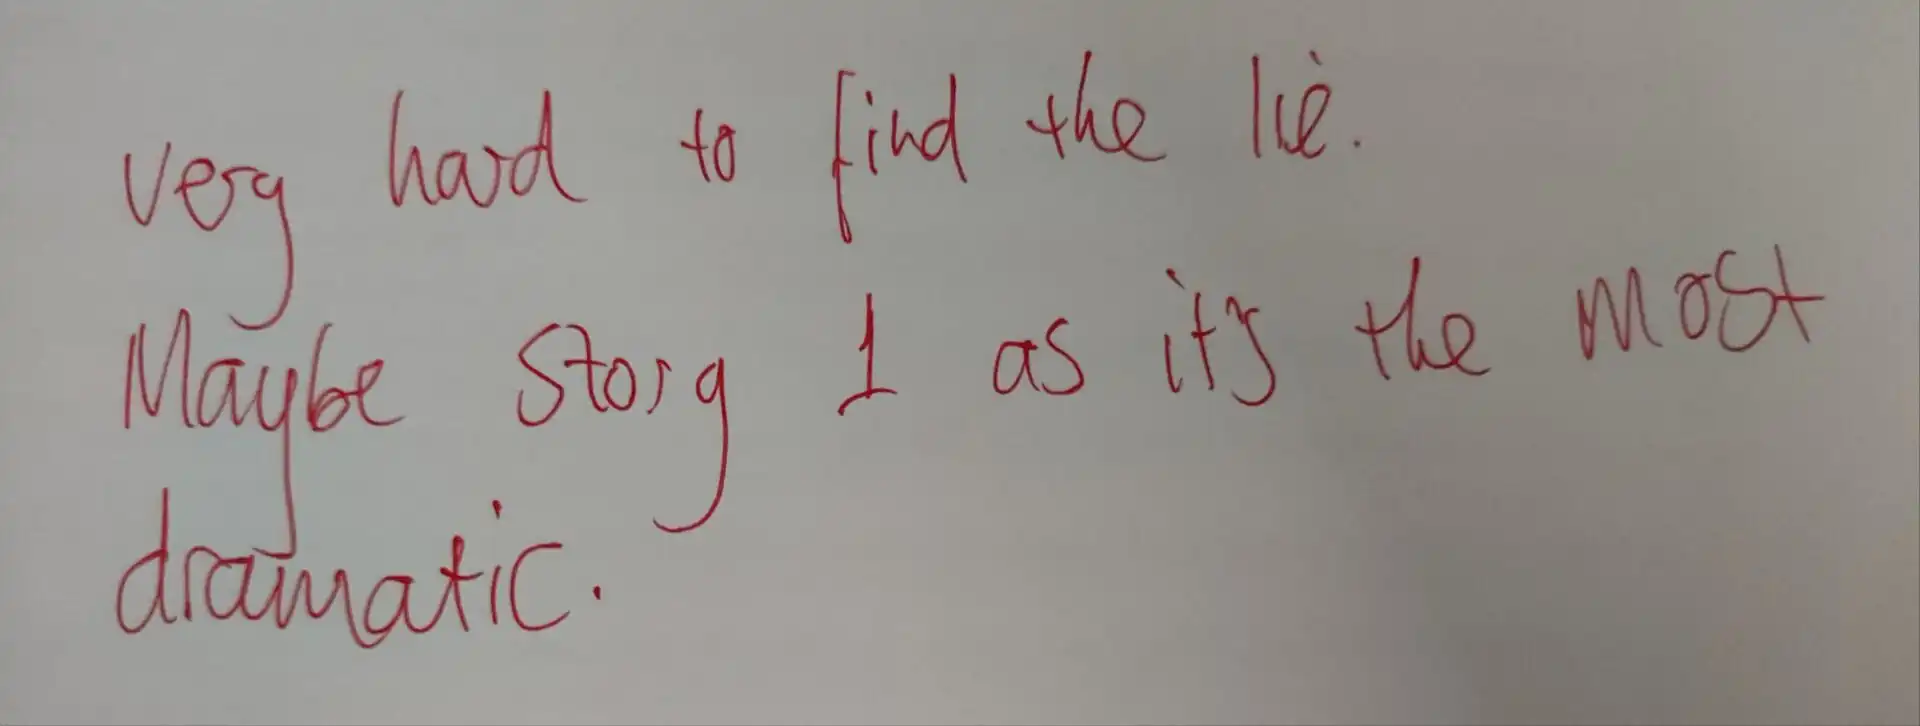 very hard to find the lie.
Maybe story 1 as it's the most
dramatic.